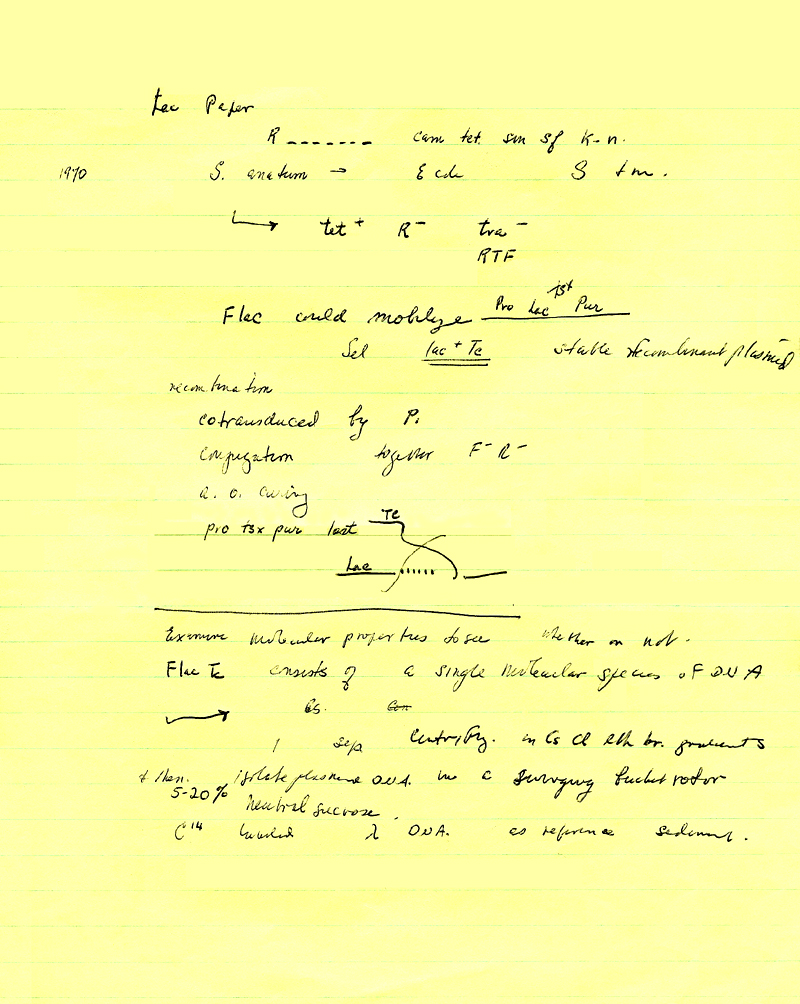 Lac Paper
R ------- cam tet. sm sf k-n.
1970 S. anatum → E coli S tm.
tet + R - tra -
RTF
Flac could mobilize Pro Lac tsx Pur
Sel lac + Tc stable recombinant plasmid
recombination
cotransduced by P1
conjugation together F - R -
a. o. curing
pro tsx pur lost Tc
Lac
Examine molecular properties to see whether or not.
Flac Tc consists of a single molecular species of DNA
Cs.
1 sep Centrifg. in Cs Cl Eth br. gradients
+ then. isolate plasmid DNA. in a swinging bucket rotor
5-20% Neutral sucrose.
C14 labeled λ DNA. as reference sediment.